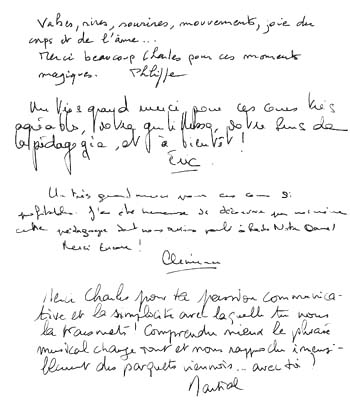 Valses, rires, sourires, mouvements, joie du
corps et de l'âme...
Merci beaucoup Charles pour ces moments
magiques. Philippe
Un très grand merci pour ces cours très
agréables, votre gentillesse, votre sens de
la pédagogie, et à bientôt !
Eric
Un très grand merci pour ces cours si
profitables. J'ai été heureuse de découvrir
cette pédagogie dont nous avions parlé à Radio Notre Dame !
Merci Encore !
Merci Charles pour ta passion communica-
tive et la simplicité avec laquelle tu nous
la transmets ! Comprendre mieux la phrase
musicale change tout et nous rapproche insensi-
blement des parquets viennois... avec toi !
Martial